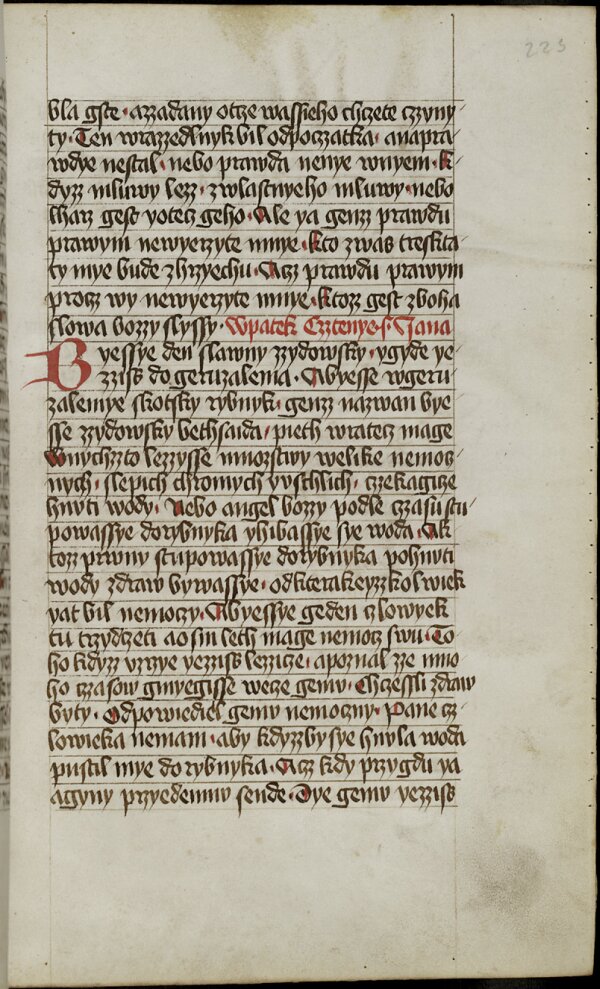 223
bla gste · azzadany otcze wassieho chczete czyny-
ty · Ten wrazzedlnyk bil odpoczatka · anapra-
wdye nestal · nebo prawda nenye wnyem · K-
dyzz mluwy lezz · zwlastnyeho mluwy · nebo
lharz gest yotecz geho · Ale ya genzz prawdu
prawym newyerzyte mnye · kto zwas treskta-
ty mye bude zhrzyechu · Acz prawdu prawym
procz wy newyerzyte mnye · ktoz gest zboha
slowa bozzy slyssy · Wpatek Cztenye · s · Jana
Byessye den slawny zzydowsky · ygyde ye-
zziss do geruzalema · Abyesse wgeru-
zalemye skotsky rybnyk · genzz nazwan bye-
sse zzydowsky bethsaida · pieth wratecz mage
Wnychzto lezzysse mnozstwy welike nemocz-
nych · slepich chromych yvschlich · czekagicze
hnuti wody · Nebo angel bozzy podle czasu stu-
powassye dorybnyka yhibassye sye woda · Ak-
tozz prwny stupowassye dorybnyka pohnuti
wody zdraw bywassye · odkterakeyzzkolwiek
yat bil nemoczy · Abyessye geden czlowyek
tu trzydczeti aosm leth mage nemocz swu · To-
ho kdyzz vzrzye yezziss lezzicze · apoznal zze mno-
ho czasow gmyegisse wecze gemu · Chczessli zdraw
byty · Odpowiediel gemu nemoczny · Pane cz-
lowieka nemam · aby kdyzzby sye hnula woda
pustil mye do rybnyka · Acz kdy przygdu ya
agyny przyedemnu sende · Dye gemu yezziss